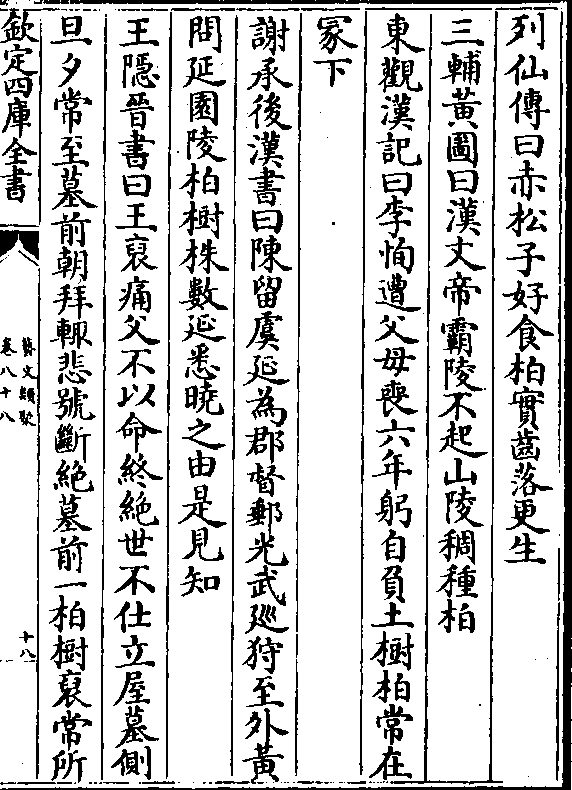 列仙傳曰赤松子好食柏實齒落更生
三輔黃圖曰漢文帝霸陵不起山陵稠種柏
東觀漢記曰李恂遭父母喪六年躬自負土樹柏常在
冢下
謝承後漢書曰陳留虞延為郡督郵光武巡狩至外黃
問延園陵柏樹株數延悉曉之由是見知
王隠晉書曰王裒痛父不以命終絶世不仕立屋墓側
旦夕常至墓前朝拜輙悲號斷絶墓前一柏樹裒常所
欽定四庫全書
藝文類聚
卷八十八
十八